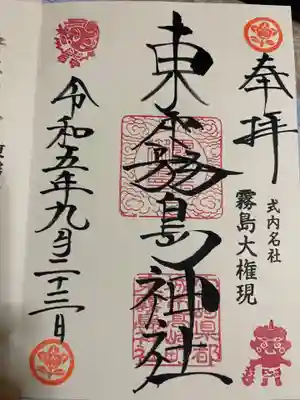 奉拝
式内名社
霧島大権現
東霧島神社
令和五年九月二十三日